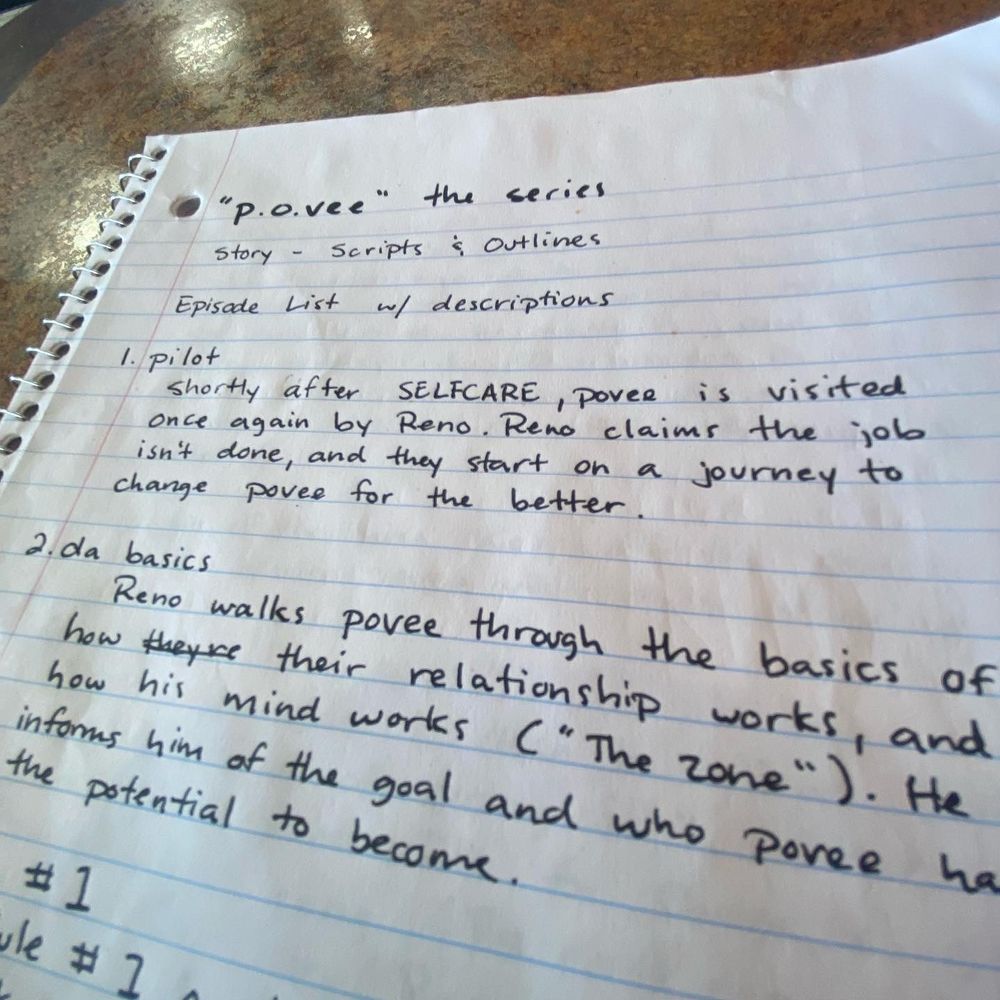 "p.o.vee" the series
Story - Scripts & Outlines
Episode List w/ descriptions
1. pilot
shortly after SELFCARE, povee is visited
once again by Reno. Reno claims the job
isn't done, and they start on a journey to
change povee for the better.
2. da basics
Reno walks povee through the basics of
how they're their relationship works, and
how his mind works ("The zone"). He
informs him of the goal and who povee ha
the potential to become.
#1
ule #1